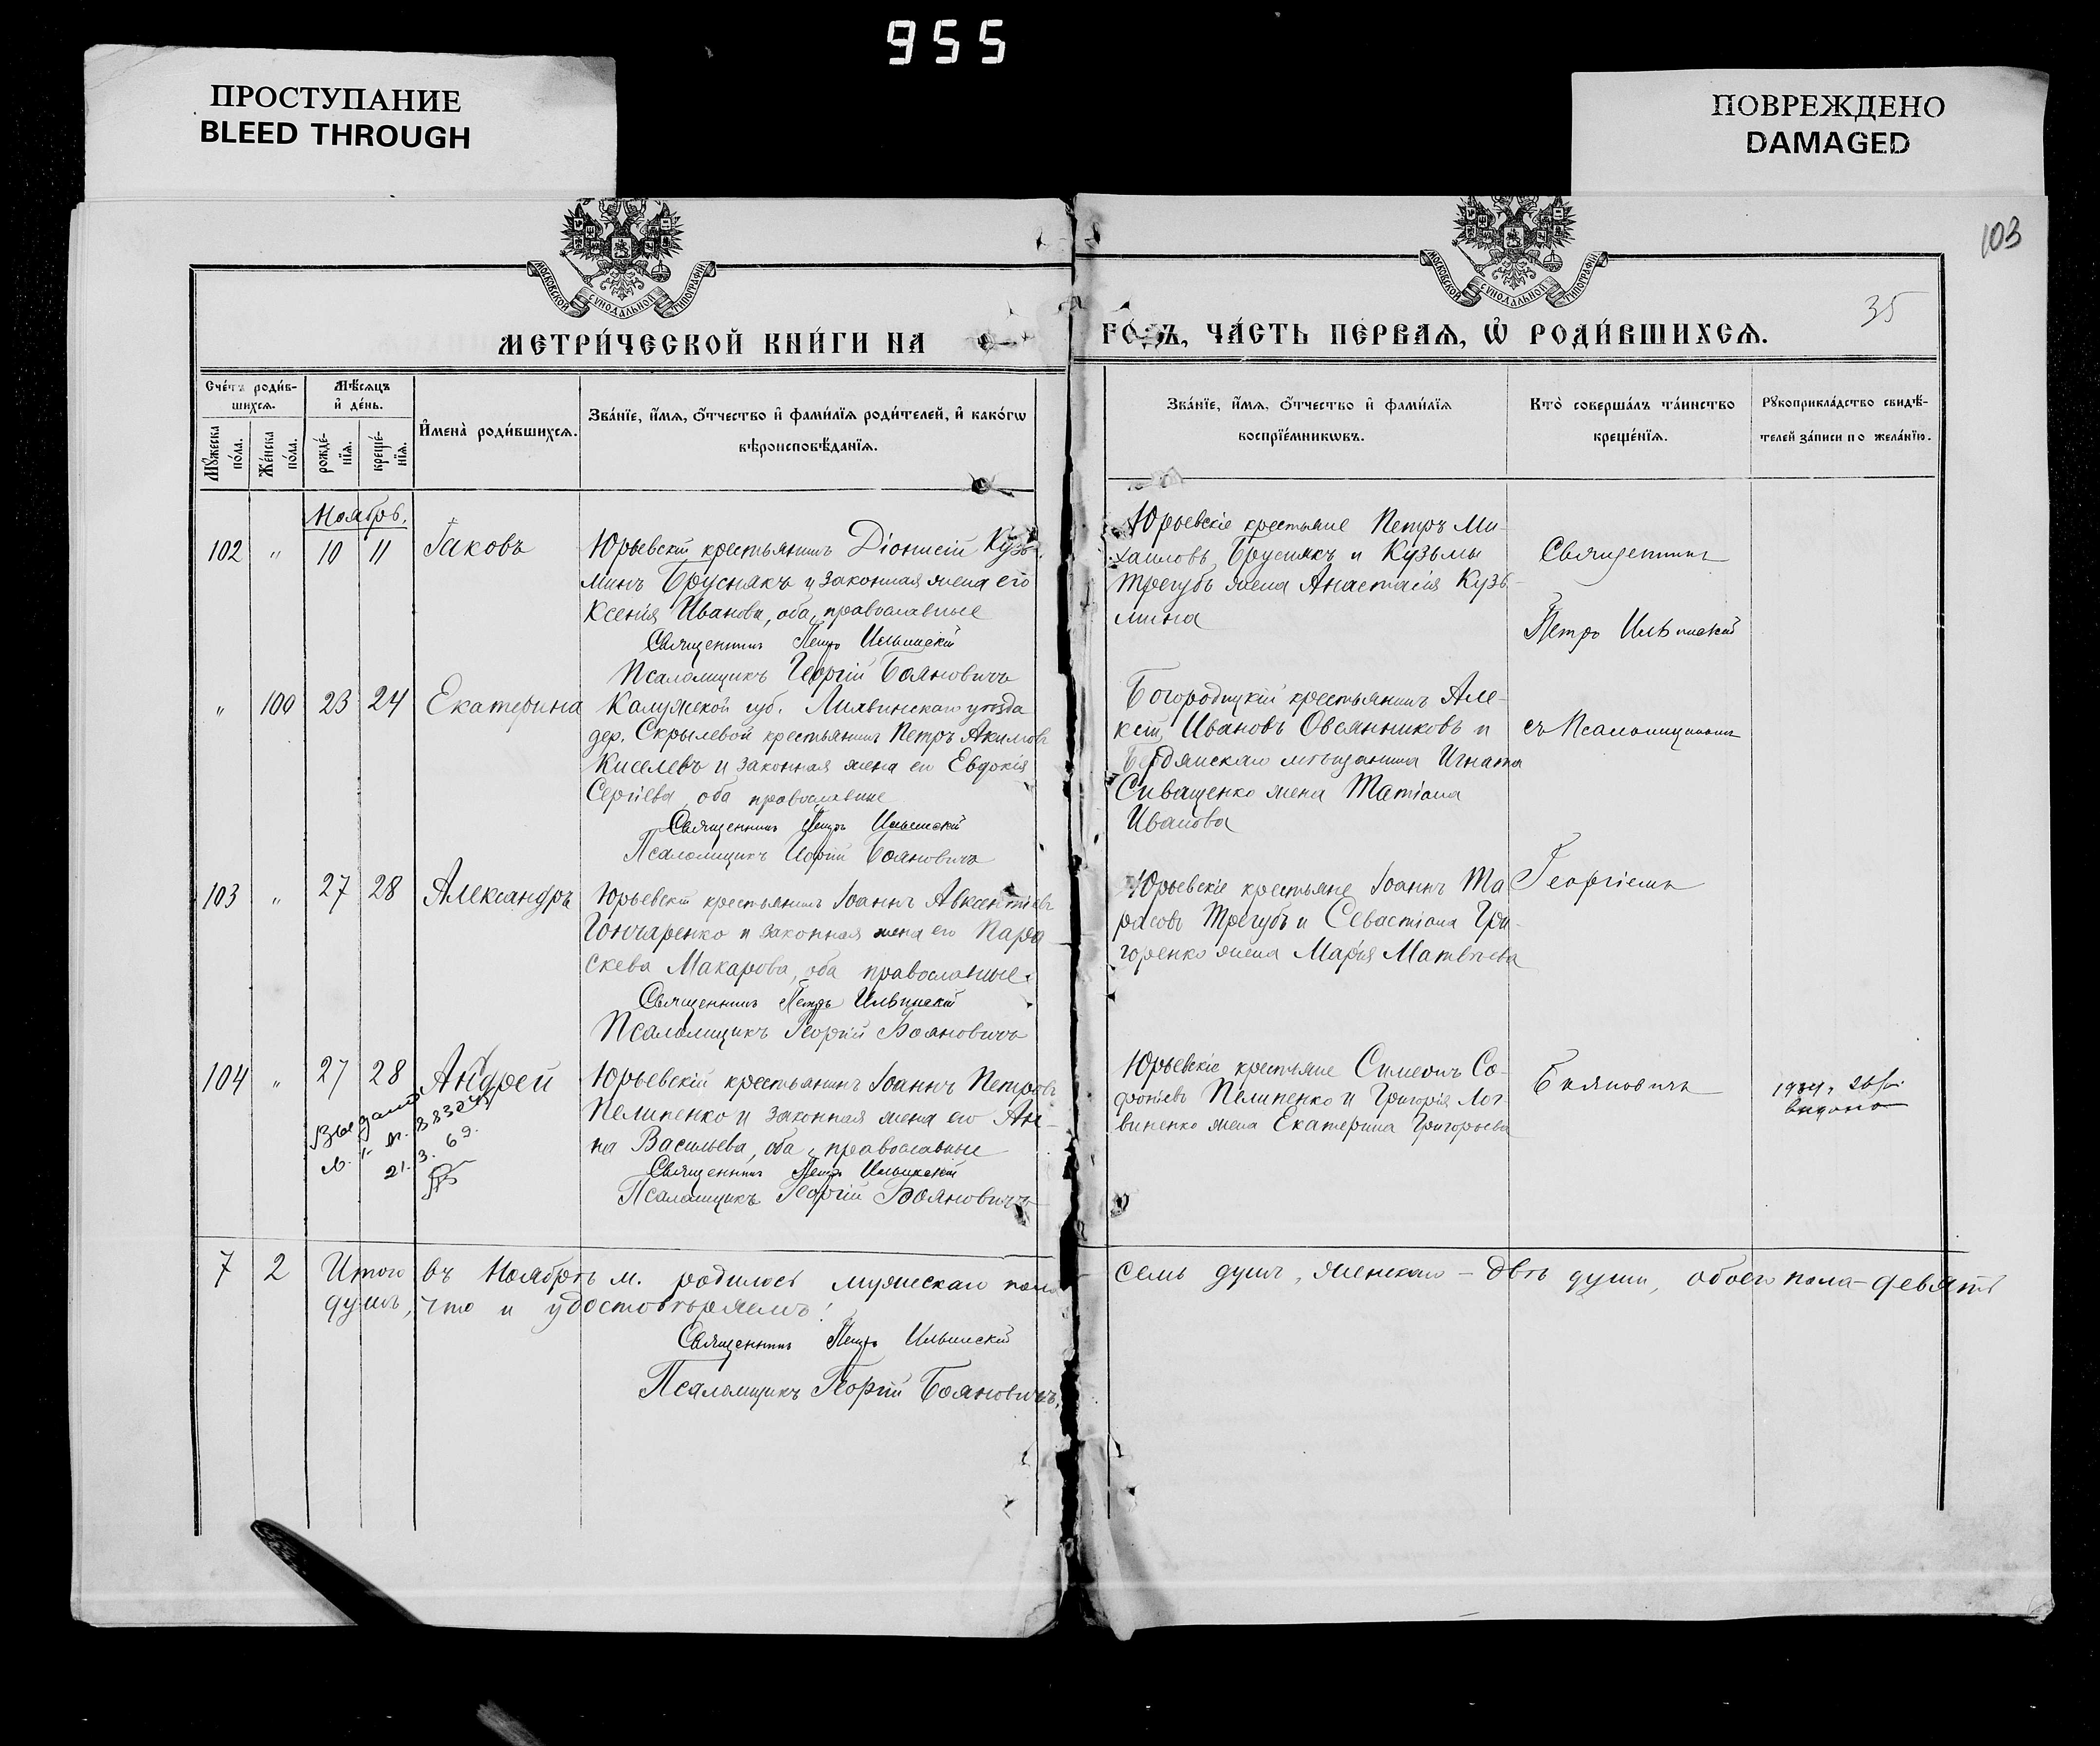 955
ПРОСТУПАНИЕ
BLEED THROUGH
ПОВРЕЖДЕНО
DAMAGED
103
35
МОСКОВСКОЙ СУНОДАЛЬНОЙ ТИПОГРАФІИ
МОСКОВСКОЙ СУНОДАЛЬНОЙ ТИПОГРАФІИ
МЕТРИ́ЧЕСКОЙ КНИ́ГИ НА
ГО́ДЪ, ЧА́СТЬ ПЕ́РВАѦ, Ѡ҆ РОДИ́ВШИХСѦ.
Сче́тъ роди́в-
шихсѧ.
Мꙋ́жеска по́ла.
Же́нска по́ла.
Мѣ́сѧцъ
и҆ де́нь.
рожде́-
нїѧ.
креще́-
нїѧ.
И҆мена̀ роди́вшихсѧ.
Зва́нїе, и҆́мѧ, ѻ҆́тчество и҆ фами́лїѧ роди́телей, и҆ како́гѡ
вѣроисповѣ́данїѧ.
Зва́нїе, и҆́мѧ, ѻ҆́тчество и҆ фами́лїѧ
воспрїе́мникѡвъ.
Кто̀ соверша́лъ та́инство
креще́нїѧ.
Рꙋкоприкла́дство свидѣ́-
телей за́писи по жела́нїю.
Ноябрь.
102 " 10 11 Іаковъ
Юрьевскій крестьянинъ Діонисій Кузь-
минъ Бруснякъ и законная жена его
Ксенія Иванова, оба православные
Священникъ Петръ Ильинскій
Псаломщикъ Георгій Бояновичъ
Юрьевскіе крестьяне Петръ Ми-
хаиловъ Бруснякъ и Кузьмы
Трегубъ жена Анастасія Кузь-
мина
Священникъ
Петръ Ильинскій
" 100 23 24 Екатерина
Калужской губ. Лихвинскаго уѣзда
дер. Скрылевой крестьянинъ Петръ Акимовъ
Киселевъ и законная жена его Евдокія
Сергіева, оба православные
Священникъ Петръ Ильинскій
Псаломщикъ Георгій Бояновичъ
Богородицкій крестьянинъ Але-
ксій Ивановъ Овсянниковъ и
Бердянскаго мѣщанина Игната
Сиващенко жена Татіана
Иванова
съ Псаломщикомъ
103 " 27 28 Александръ
Юрьевскій крестьянинъ Іоаннъ Авксентіевъ
Гончаренко и законная жена его Пара
скева Макарова, оба православные.
Священникъ Петръ Ильинскій
Псаломщикъ Георгій Бояновичъ
Юрьевскіе крестьяне Іоаннъ Та
расовъ Трегубъ и Севастіана Гри-
горенко жена Марія Матвѣева
Георгіемъ
104 " 27 28 Андрей
Юрьевскій крестьянинъ Іоаннъ Петровъ
Пелипенко и законная жена его Ан-
на Васильева, оба православные
Священникъ Петръ Ильинскій
Псаломщикъ Георгій Бояновичъ
Юрьевскіе крестьяне Симеонъ Со-
фоніевъ Пелипенко и Григорія Лог
виненко жена Екатерина Григорьева
Бояновичъ
выдано
21.3.69.
7 2 Итого въ Ноябрѣ м. родилось мужескаго пола
семь душъ, женскаго – двѣ души, обоего пола – девять
душъ, что и удостовѣряемъ:
Священникъ Петръ Ильинскій
Псаломщикъ Георгій Бояновичъ.